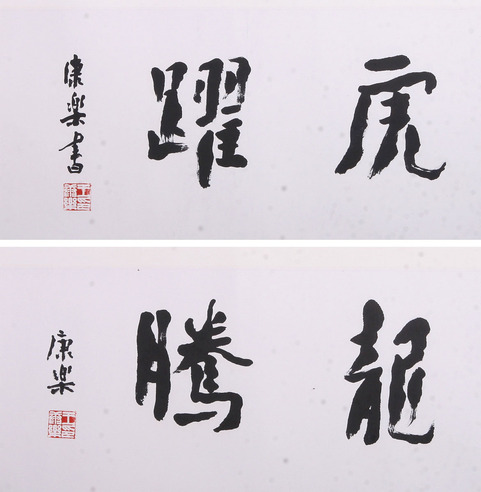 虎躍
康樂書
龍騰
康樂